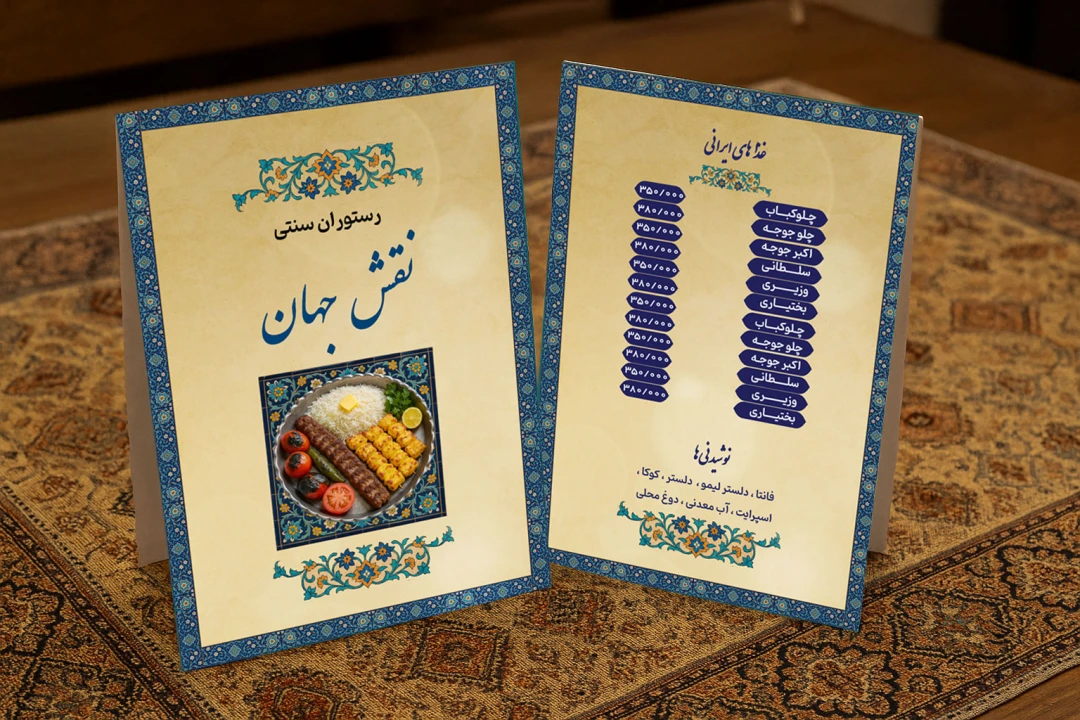 رستوران سنتی
نقش جهان
غذاهای ایرانی
چلوکباب ۳۵۰/۰۰۰
چلو جوجه ۳۸۰/۰۰۰
اکبر جوجه ۳۵۰/۰۰۰
سلطانی ۳۸۰/۰۰۰
وزیری ۳۵۰/۰۰۰
بختیاری ۳۸۰/۰۰۰
چلوکباب ۳۵۰/۰۰۰
چلو جوجه ۳۸۰/۰۰۰
اکبر جوجه ۳۵۰/۰۰۰
سلطانی ۳۸۰/۰۰۰
وزیری ۳۵۰/۰۰۰
بختیاری ۳۸۰/۰۰۰
نوشیدنی‌ها
فانتا ، دلستر لیمو ، دلستر ، کوکا ،
اسپرایت ، آب معدنی ، دوغ محلی